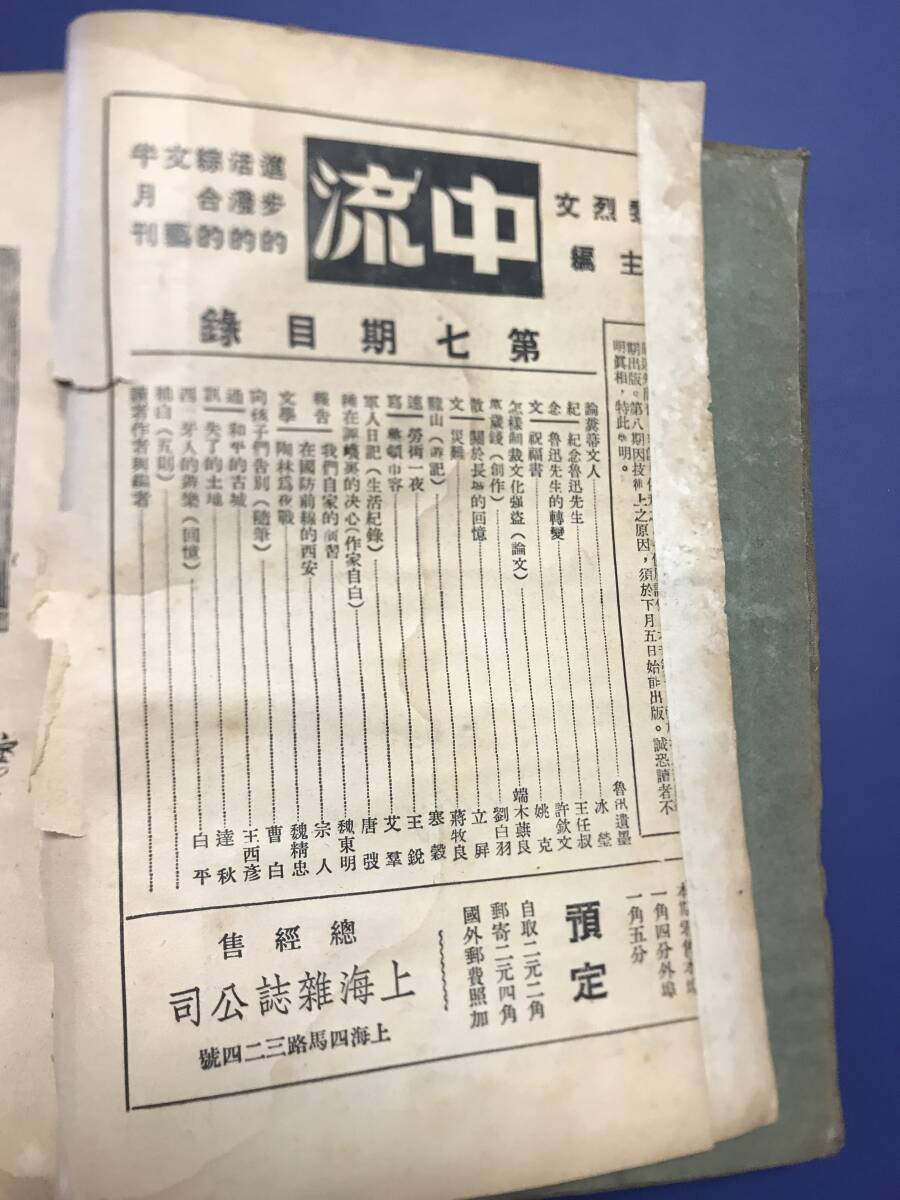 烈文
主編
中流
進步的
活潑的
綜合的
文藝
半月刊
第七期目錄
期出版。第八期因技術上之原因，須於下月五日始能出版。誠恐讀者不
明眞相，特此聲明。
魯迅遺墨
論糞幕文人 冰瑩
紀念 紀念魯迅先生 王任叔
魯迅先生的轉變 許欽文
文 祝福書 姚克
怎樣制裁文化強盜（論文） 端木蕻良
歲錢（創作） 劉白羽
散 關於長城的回憶 立屛
文 災難 蔣牧良
龍山（遊記） 塞縠
速 勞街一夜 王銳
寫 容 艾羣
軍人日記（生活紀錄） 唐弢
的決心（作家自白） 魏東明
報告 我們自家的演習 宗人
在國防前線的西安 魏精忠
文學 陶林爲夜戰 曹白
向孩子們告別（隨筆） 王西彥
通 和平的古城 達秋
訊 失了的土地 白平
西牙人的游樂（回憶）
補白（五則）
讀者作者與編者
本期零售本埠
一角四分外埠
一角五分
預定
自取二元二角
郵寄二元四角
國外郵費照加
總經售
上海雜誌公司
上海四馬路三二四號